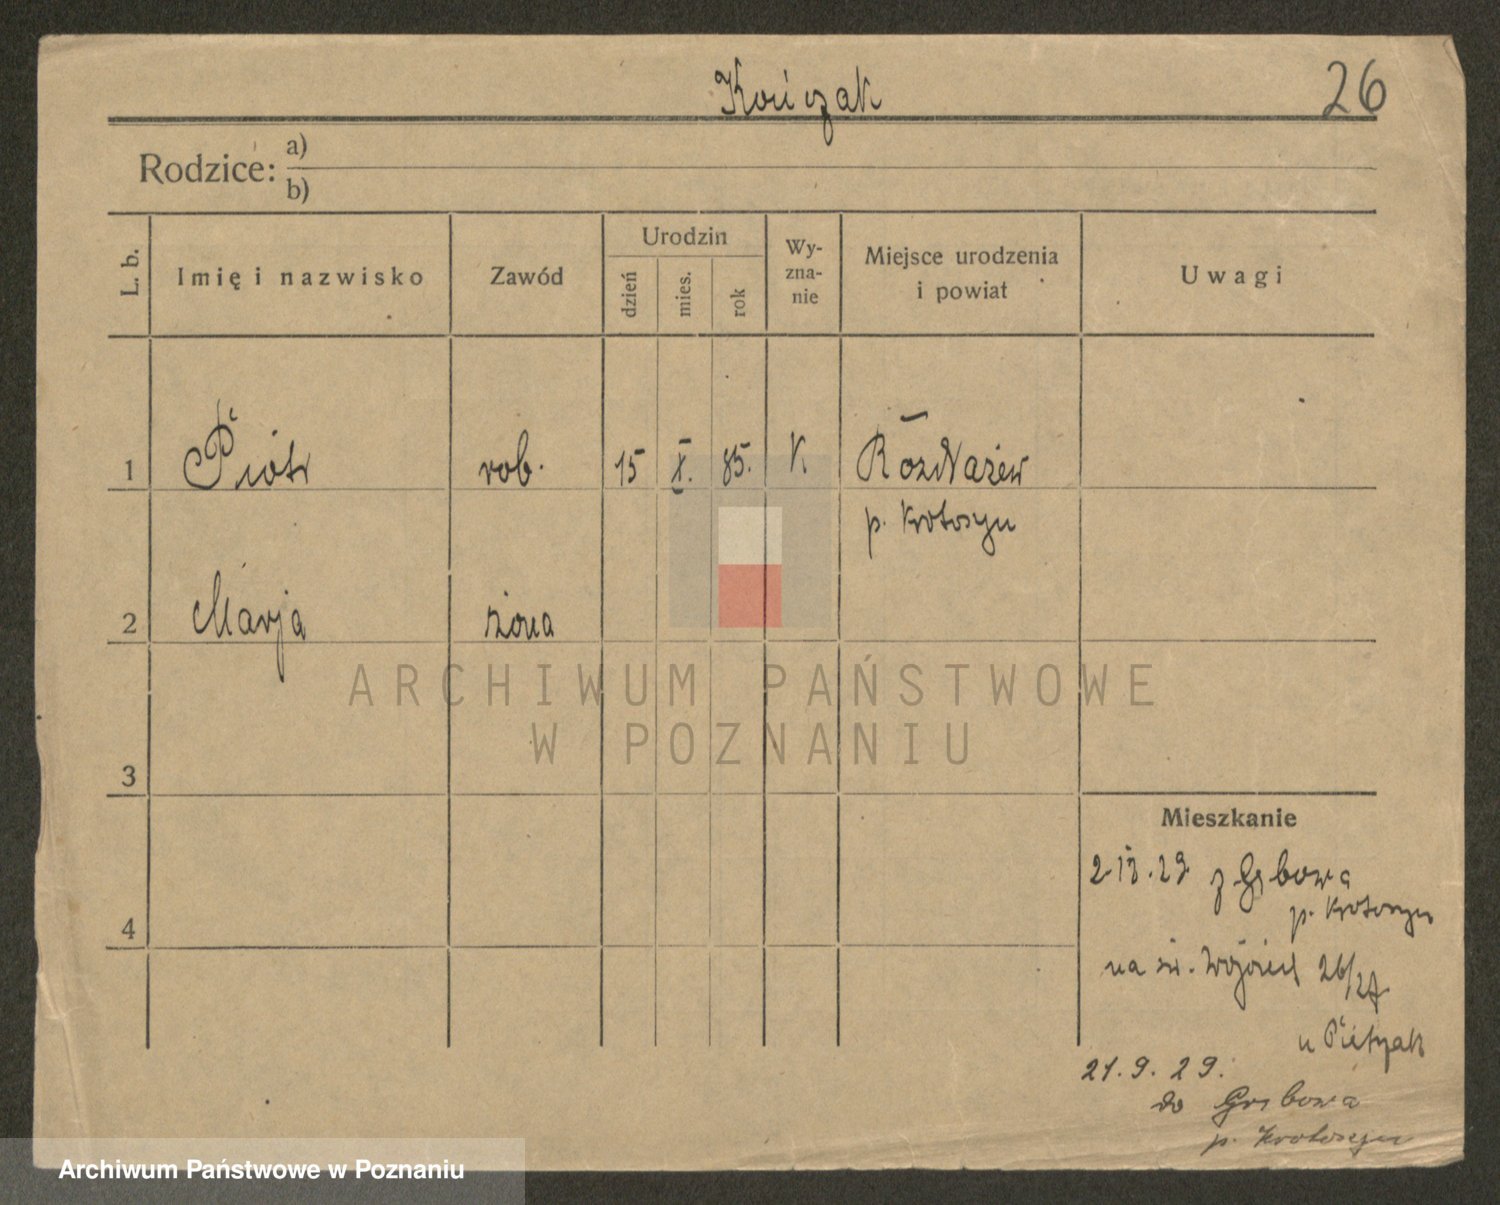 Kończak
26
Rodzice: a)
b)
L. b.
Imię i nazwisko
Zawód
Urodzin
dzień
mies.
rok
Wy-
zna-
nie
Miejsce urodzenia
i powiat
Uwagi
1 Piotr rob. 15 X. 85. K Rozdrażew
p. Krotoszyn
2 Marja żona
ARCHIWUM PAŃSTWOWE
W POZNANIU
3
Mieszkanie
z
p. Krotoszyn
4
na św. Wojciech 26/27
u Pietrzak
21.9.29.
do
p. Krotoszyn
Archiwum Państwowe w Poznaniu